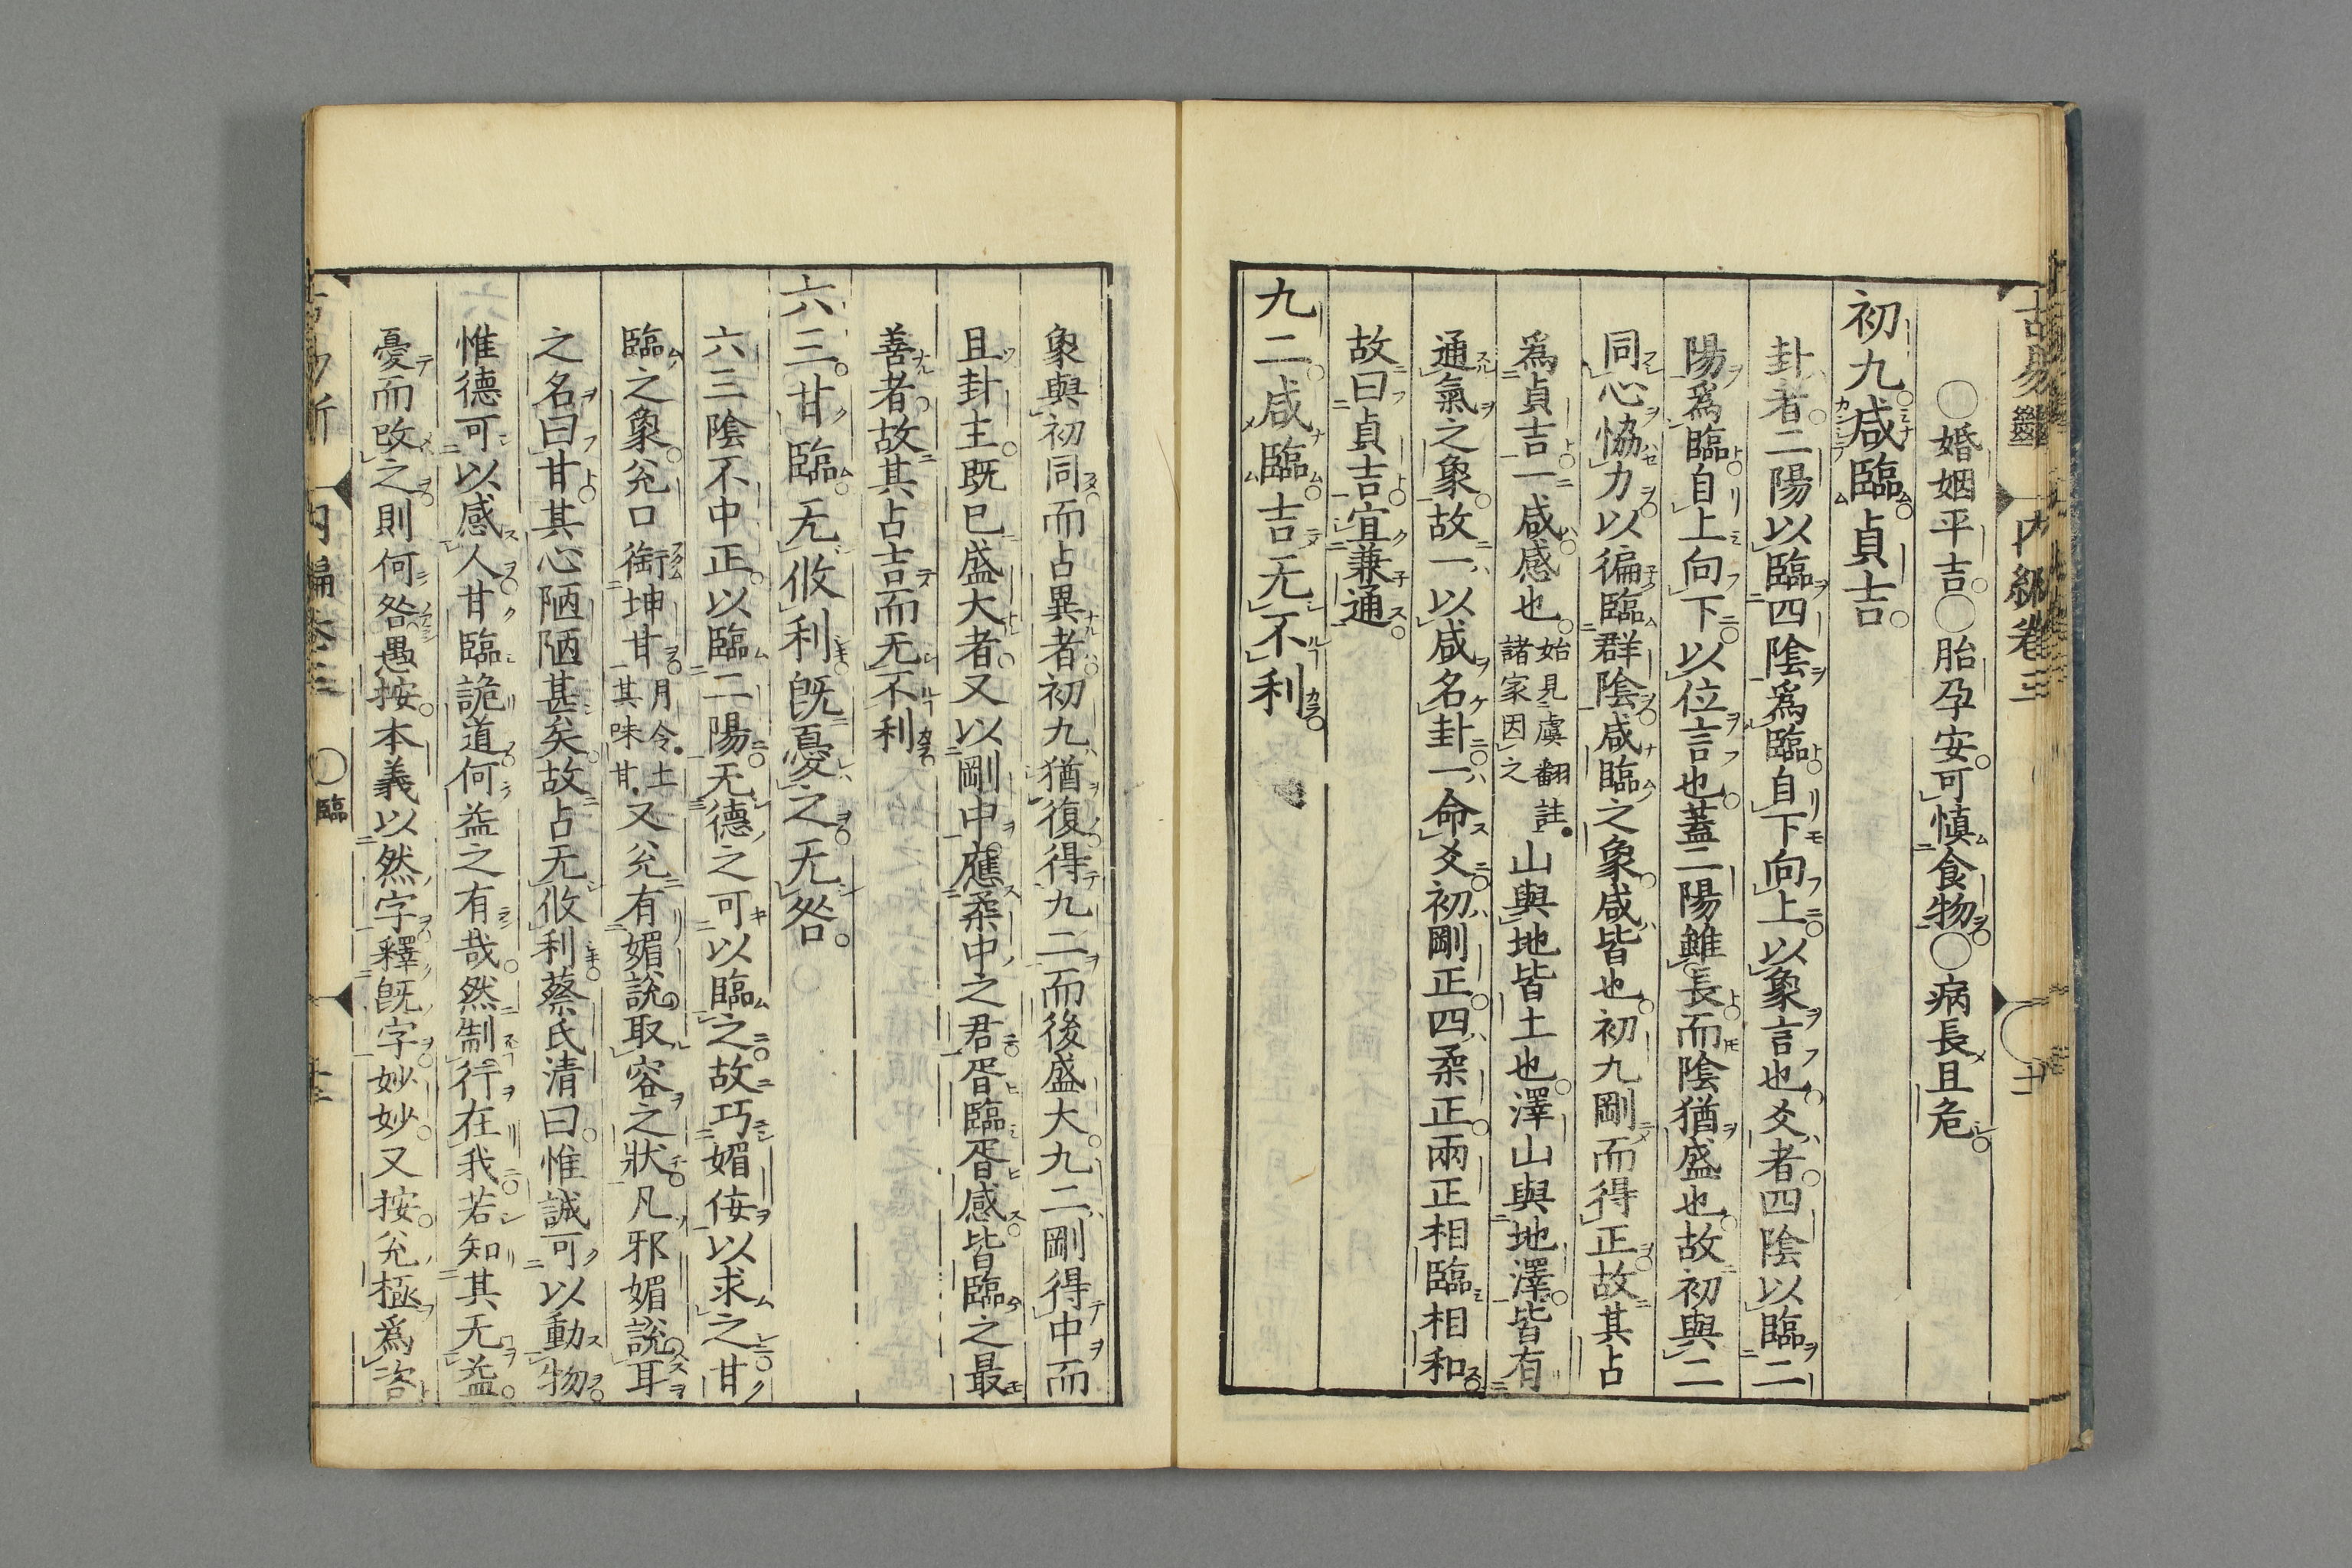 ○婚姻平吉○胎孕安可慎食物○病長且危
初九咸臨貞吉
卦者二陽以臨四陰爲臨自下向上以象言也爻者四陰以臨二
陽爲臨自上向下以位言也蓋二陽雖長而陰猶盛也故初與二
同心恊力以徧臨群陰咸臨之象咸皆也初九剛而得正故其占
爲貞吉一咸感也始見虞翻註諸家因之山與地皆土也澤山與地澤皆有
通氣之象故一以咸名卦一命爻初剛正四柔正兩正相臨相和
故曰貞吉宜兼通
九二咸臨吉无不利
象與初同而占異者初九猶復得九二而後盛大九二剛得中而
且卦主既已盛大者又以剛中應柔中之君胥臨胥感皆臨之最
善者故其占吉而无不利
六三甘臨无攸利既憂之无咎
六三陰不中正以臨二陽无德之可以臨之故巧媚侫以求之甘
臨之象兊口銜坤甘月令土其味甘又兊有媚説取容之狀凡邪媚説耳
之名曰甘其心陋陋甚矣故占无攸利蔡氏清曰惟誠可以動物
惟德可以感人甘臨詭道何益之有哉然制行在我若知其无益
憂而改之則何咎愚按本義以然字釋既字妙妙又按兊極爲咨
内編卷三 ○臨
内編卷三